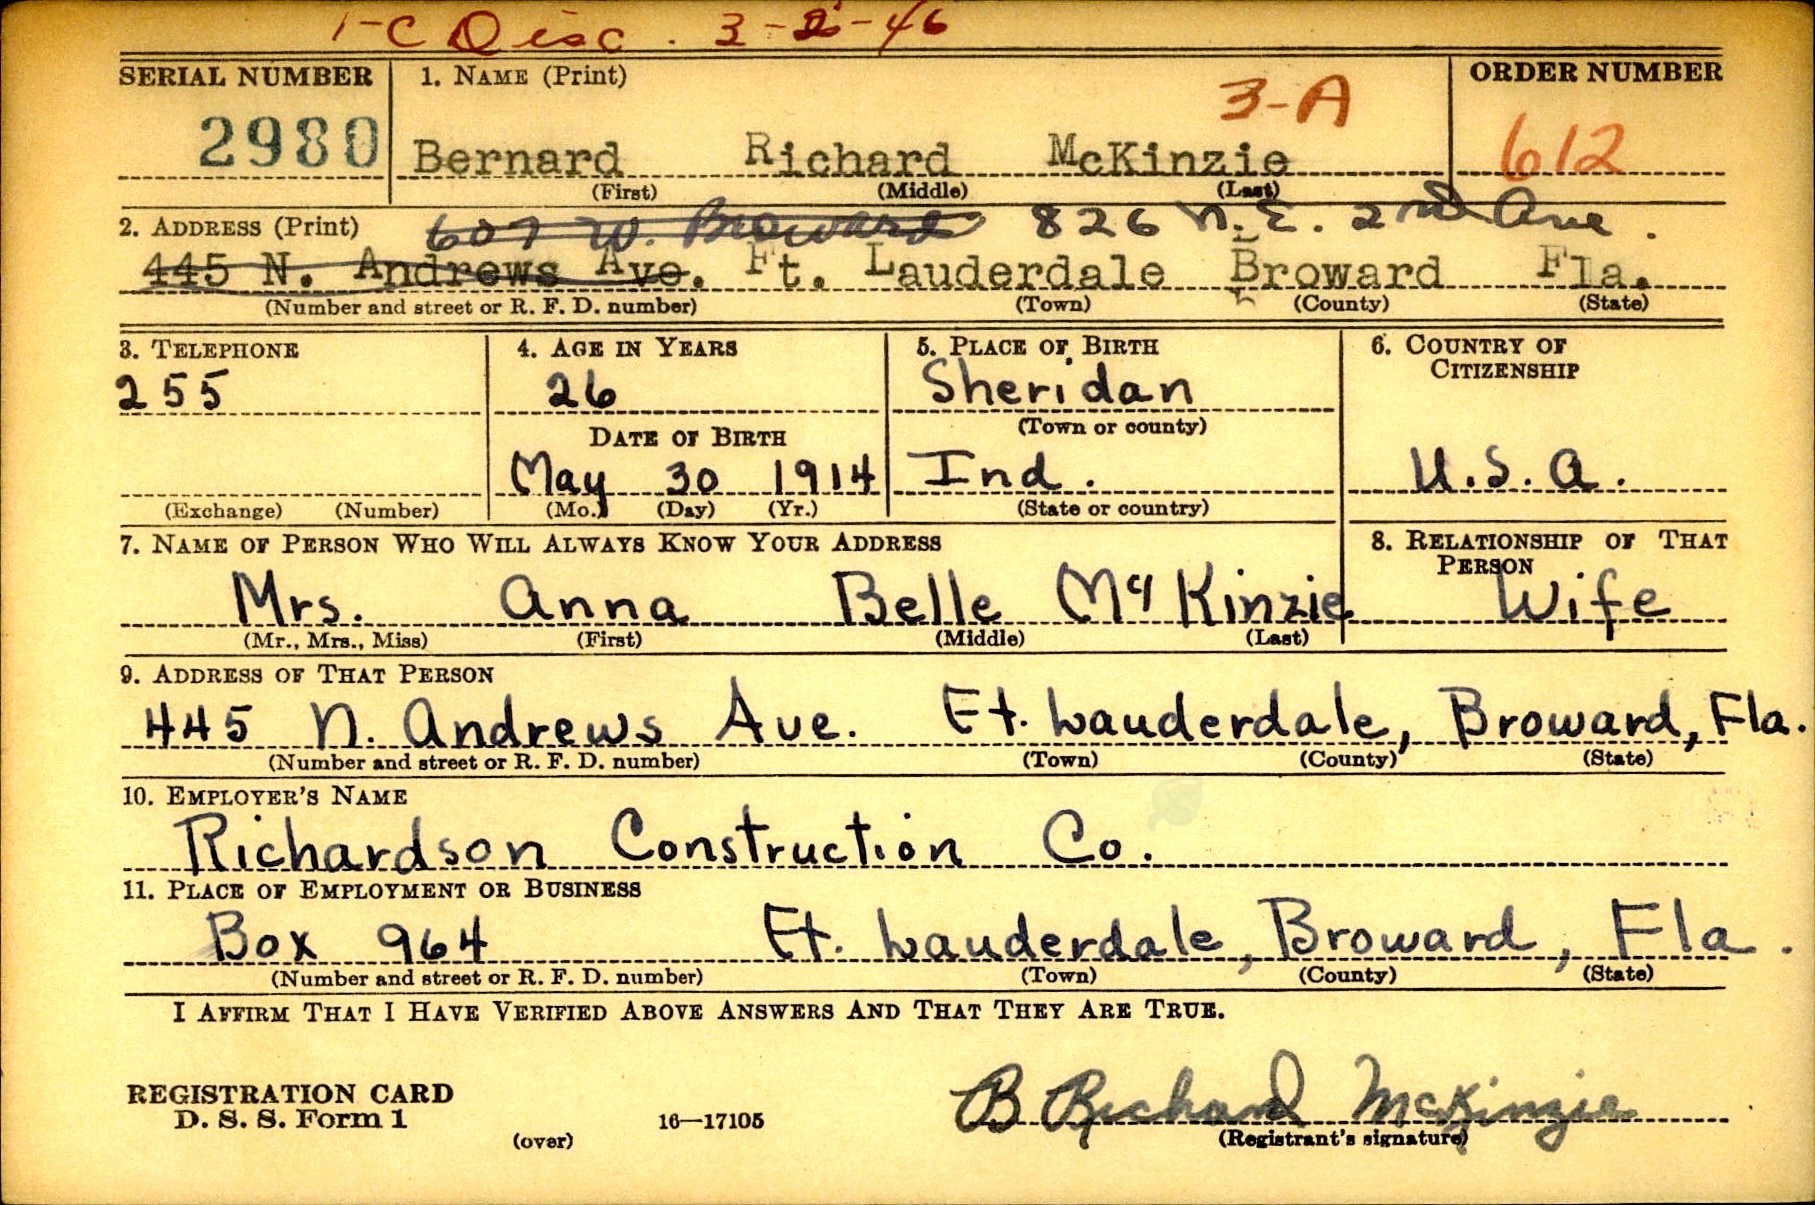 1-C Disc. 3-2-46
SERIAL NUMBER 1. NAME (Print) ORDER NUMBER
3-A
2980 Bernard Richard McKinzie 612
(First) (Middle) (Last)
2. ADDRESS (Print) 607 W. Broward 826 N.E. 2nd Ave.
445 N. Andrews Ave. Ft. Lauderdale Broward Fla.
(Number and street or R. F. D. number) (Town) (County) (State)
3. TELEPHONE 4. AGE IN YEARS 5. PLACE OF BIRTH 6. COUNTRY OF
CITIZENSHIP
255 26 Sheridan
DATE OF BIRTH (Town or county)
May 30 1914 Ind. U.S.A.
(Exchange) (Number) (Mo.) (Day) (Yr.) (State or country)
7. NAME OF PERSON WHO WILL ALWAYS KNOW YOUR ADDRESS 8. RELATIONSHIP OF THAT
PERSON
Mrs. Anna Belle McKinzie Wife
(Mr., Mrs., Miss) (First) (Middle) (Last)
9. ADDRESS OF THAT PERSON
445 N. Andrews Ave. Ft. Lauderdale, Broward, Fla.
(Number and street or R. F. D. number) (Town) (County) (State)
10. EMPLOYER'S NAME
Richardson Construction Co.
11. PLACE OF EMPLOYMENT OR BUSINESS
Box 964 Ft. Lauderdale, Broward, Fla.
(Number and street or R. F. D. number) (Town) (County) (State)
I AFFIRM THAT I HAVE VERIFIED ABOVE ANSWERS AND THAT THEY ARE TRUE.
REGISTRATION CARD
D. S. S. Form 1 16—17105 B Richard McKinzie
(over) (Registrant's signature)